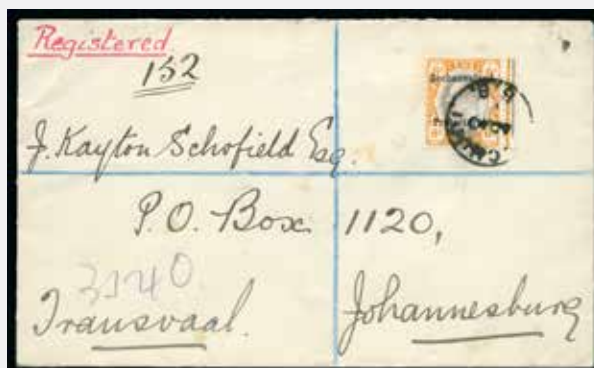 Registered
152
J. Kayton Schofield Esq.
P.O. Box 1120,
3140
Transvaal. Johannesburg